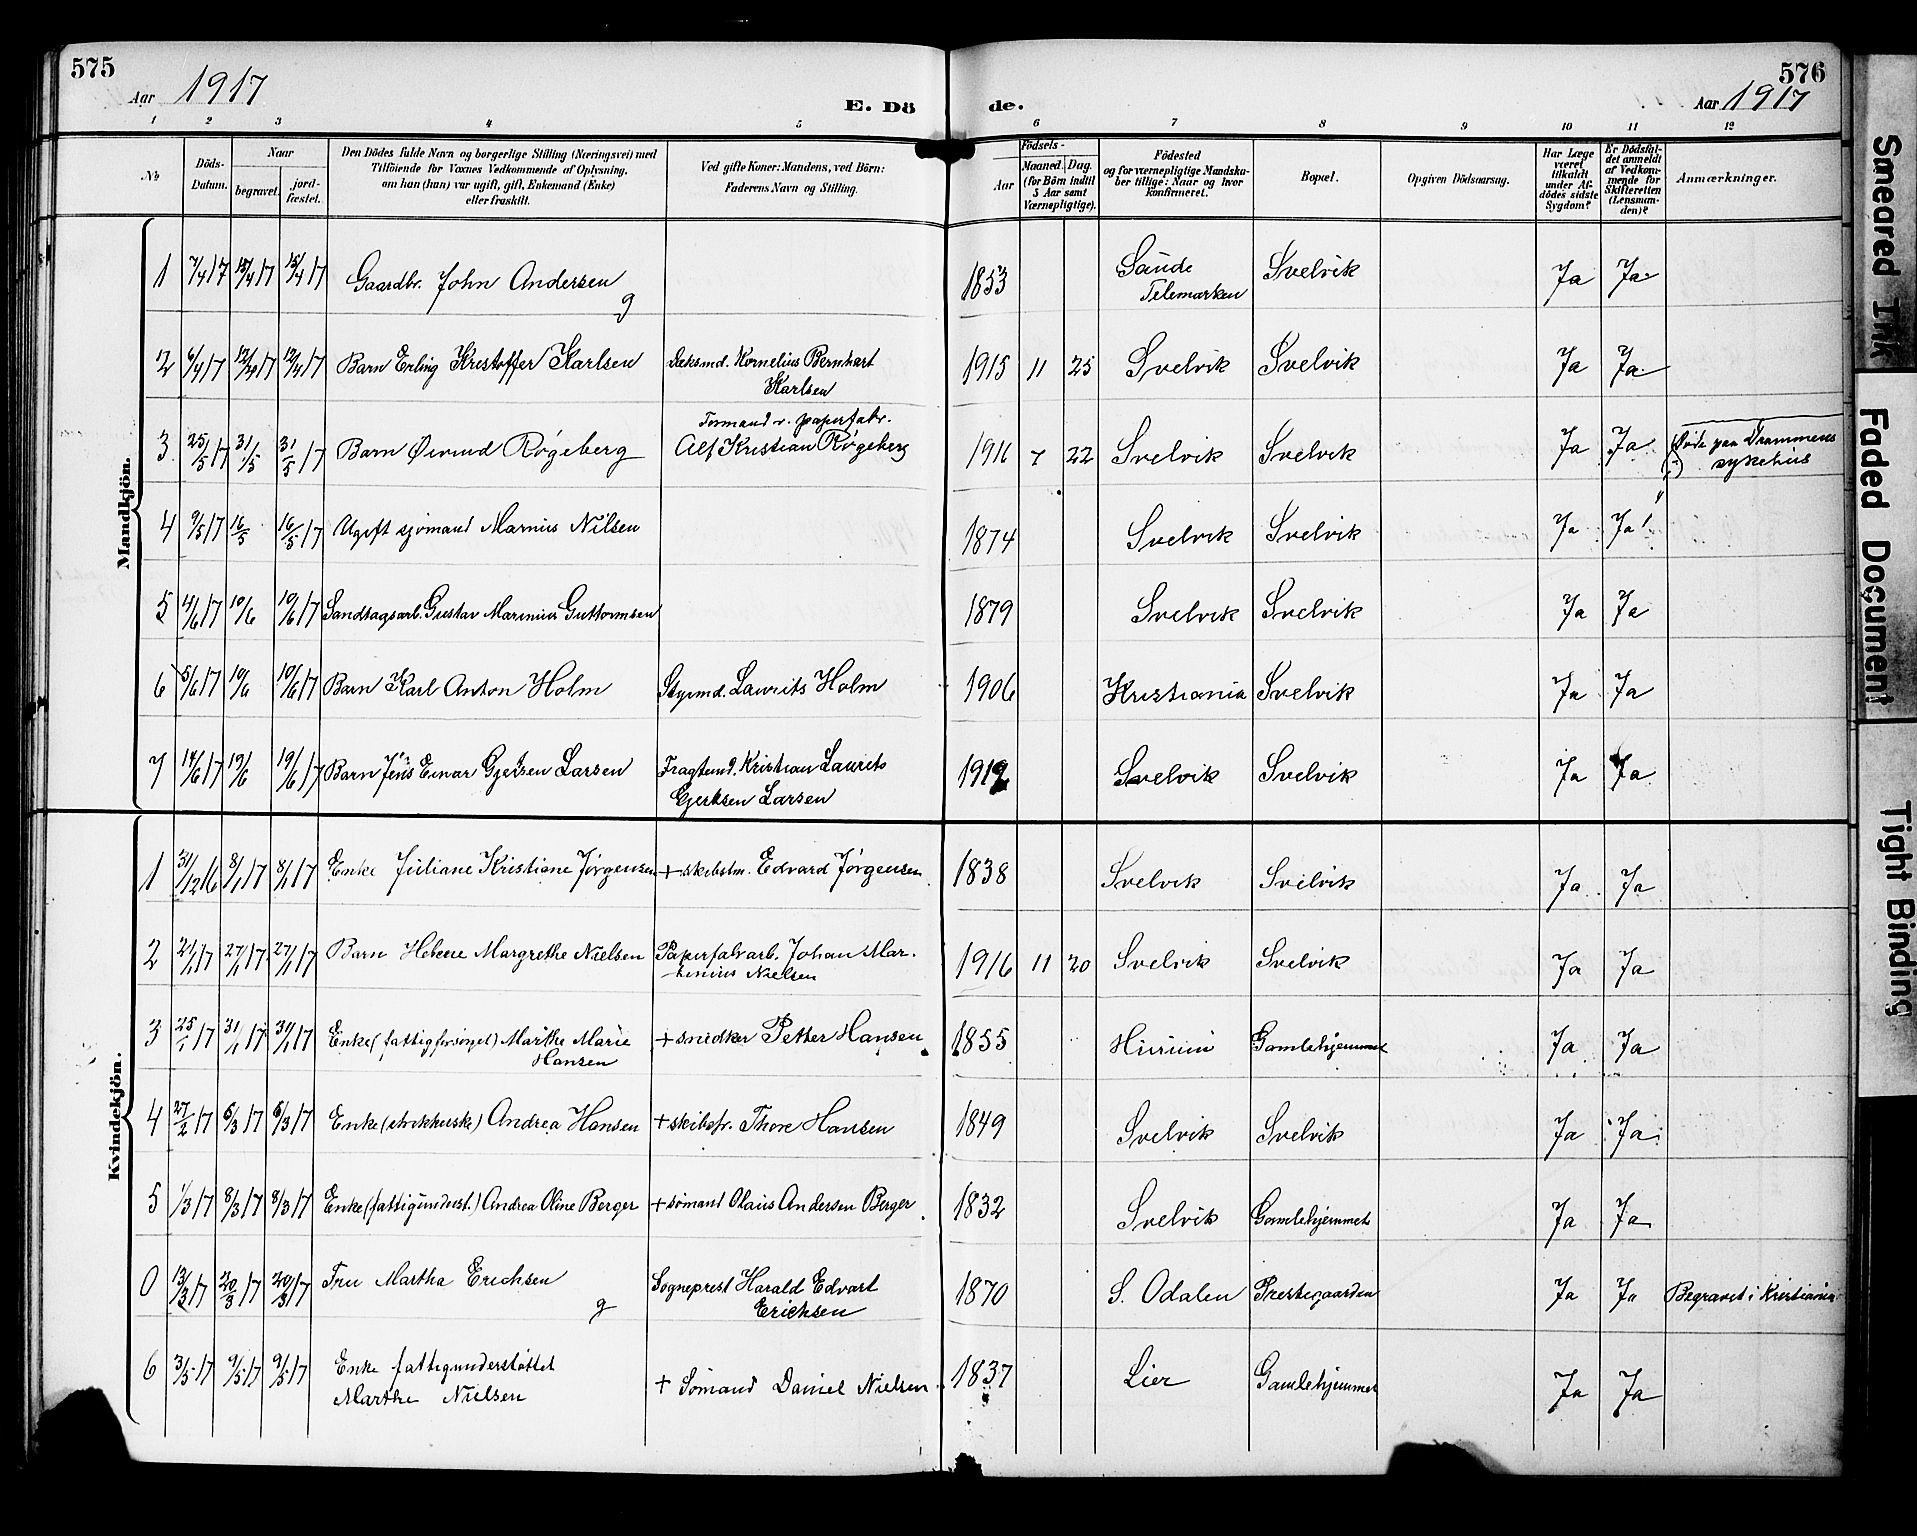 575
576
Aar 1917
E. Dö
de.
Aar 1917
1 2 3 4 5 6 7 8 9 10 11 12
No
Döds-
Datum.
Naar
begravet.
jord-
fæstet.
Den Dödes fulde Navn og borgerlige Stilling (Næringsvei) med
Tilföiende for Voxnes Vedkommende af Oplysning,
om han (hun) var ugift, gift, Enkemand (Enke)
eller fraskilt.
Ved gifte Koner: Mandens, ved Börn:
Faderens Navn og Stilling.
Födsels-
Aar
Maaned. Dag.
(for Börn indtil
5 Aar samt
Værnepligtige).
Födested
og for værnepligtige Mandska-
ber tillige: Naar og hvor
konfirmeret.
Bopæl.
Opgiven Dödsaarsag.
Har Læge
været
tilkaldt
under Af-
dödes sidste
Sygdom?
Er Dödsfal-
det anmeldt
af Vedkom-
mende for
Skifteretten
(Lensman-
den)?
Anmærkninger.
Mandkjön.
1 7/4 17 15/4 17 15/4 17 Gaardbr. John Andersen 1853 Saude Svelvik Ja Ja
g Telemarken
2 6/4 17 12/4 17 12/4 17 Barn Erling Kristoffer Karlsen Dæksmd. Kornelius Bernhart 1915 11 25 Svelvik Svelvik Ja Ja
Karlsen
Formand v. papirfabr.
3 25/5 17 31/5 31/5 17 Barn Øivind Røgeberg Alf Kristian Røgeberg 1911 7 22 Svelvik Svelvik Ja Ja Døde paa Drammens
sykehus
4 9/5 17 16/5 16/5 17 Ugift sjømand Marnius Nilsen 1874 Svelvik Svelvik Ja Ja
5 4/6 17 10/6 10/6 17 Sandtagsarb. Gustav Marinius Guttormsen 1879 Svelvik Svelvik Ja Ja
6 5/6 17 10/6 10/6 17 Barn Karl Anton Holm Styrmd. Laurits Holm 1906 Kristiania Svelvik Ja Ja
7 14/6 17 19/6 19/6 17 Barn Jens Einar Gjersen Larsen Fragtemd. Kristian Laurits 1912 Svelvik Svelvik Ja Ja
Gjertsen Larsen
Kvindekjön.
1 31/12 16 8/1 17 8/1 17 Enke Juliane Kristiane Jørgensen + skibstm. Edvard Jørgensen 1838 Svelvik Svelvik Ja Ja
2 21/1 17 27/1 17 27/1 17 Barn Helene Margrethe Nielsen Papirfabrarb. Johan Mar- 1916 11 20 Svelvik Svelvik Ja Ja
tinius Nielsen
3 25/1 17 31/1 17 31/1 17 Enke (fattigforsørget) Marthe Marie + snedker Petter Hansen 1855 Hurum Gamlehjemmet Ja Ja
Hansen
4 27/2 17 6/3 17 6/3 17 Enke (strikkerske) Andrea Hansen + skibsfr. Thore Hansen 1849 Svelvik Svelvik Ja Ja
5 1/3 17 8/3 17 8/3 17 Enke (fattigunderst.) Andrea Oline Berger + sømand Olaus Andersen Berger 1832 Svelvik Gamlehjemmet Ja Ja
0 13/3 17 20/3 17 20/3 17 Fru Martha Erichsen Sogneprest Harald Edvart 1870 S. Odalen Prestegaarden Ja Ja Begravet i Kristiania
g Erichsen
6 3/5 17 9/5 17 9/5 17 Enke fattigunderstøttet
Marthe Nielsen + Sømand Daniel Nielsen 1837 Lier Gamlehjemmet Ja Ja
Smeared Ink
Faded Document
Tight Binding